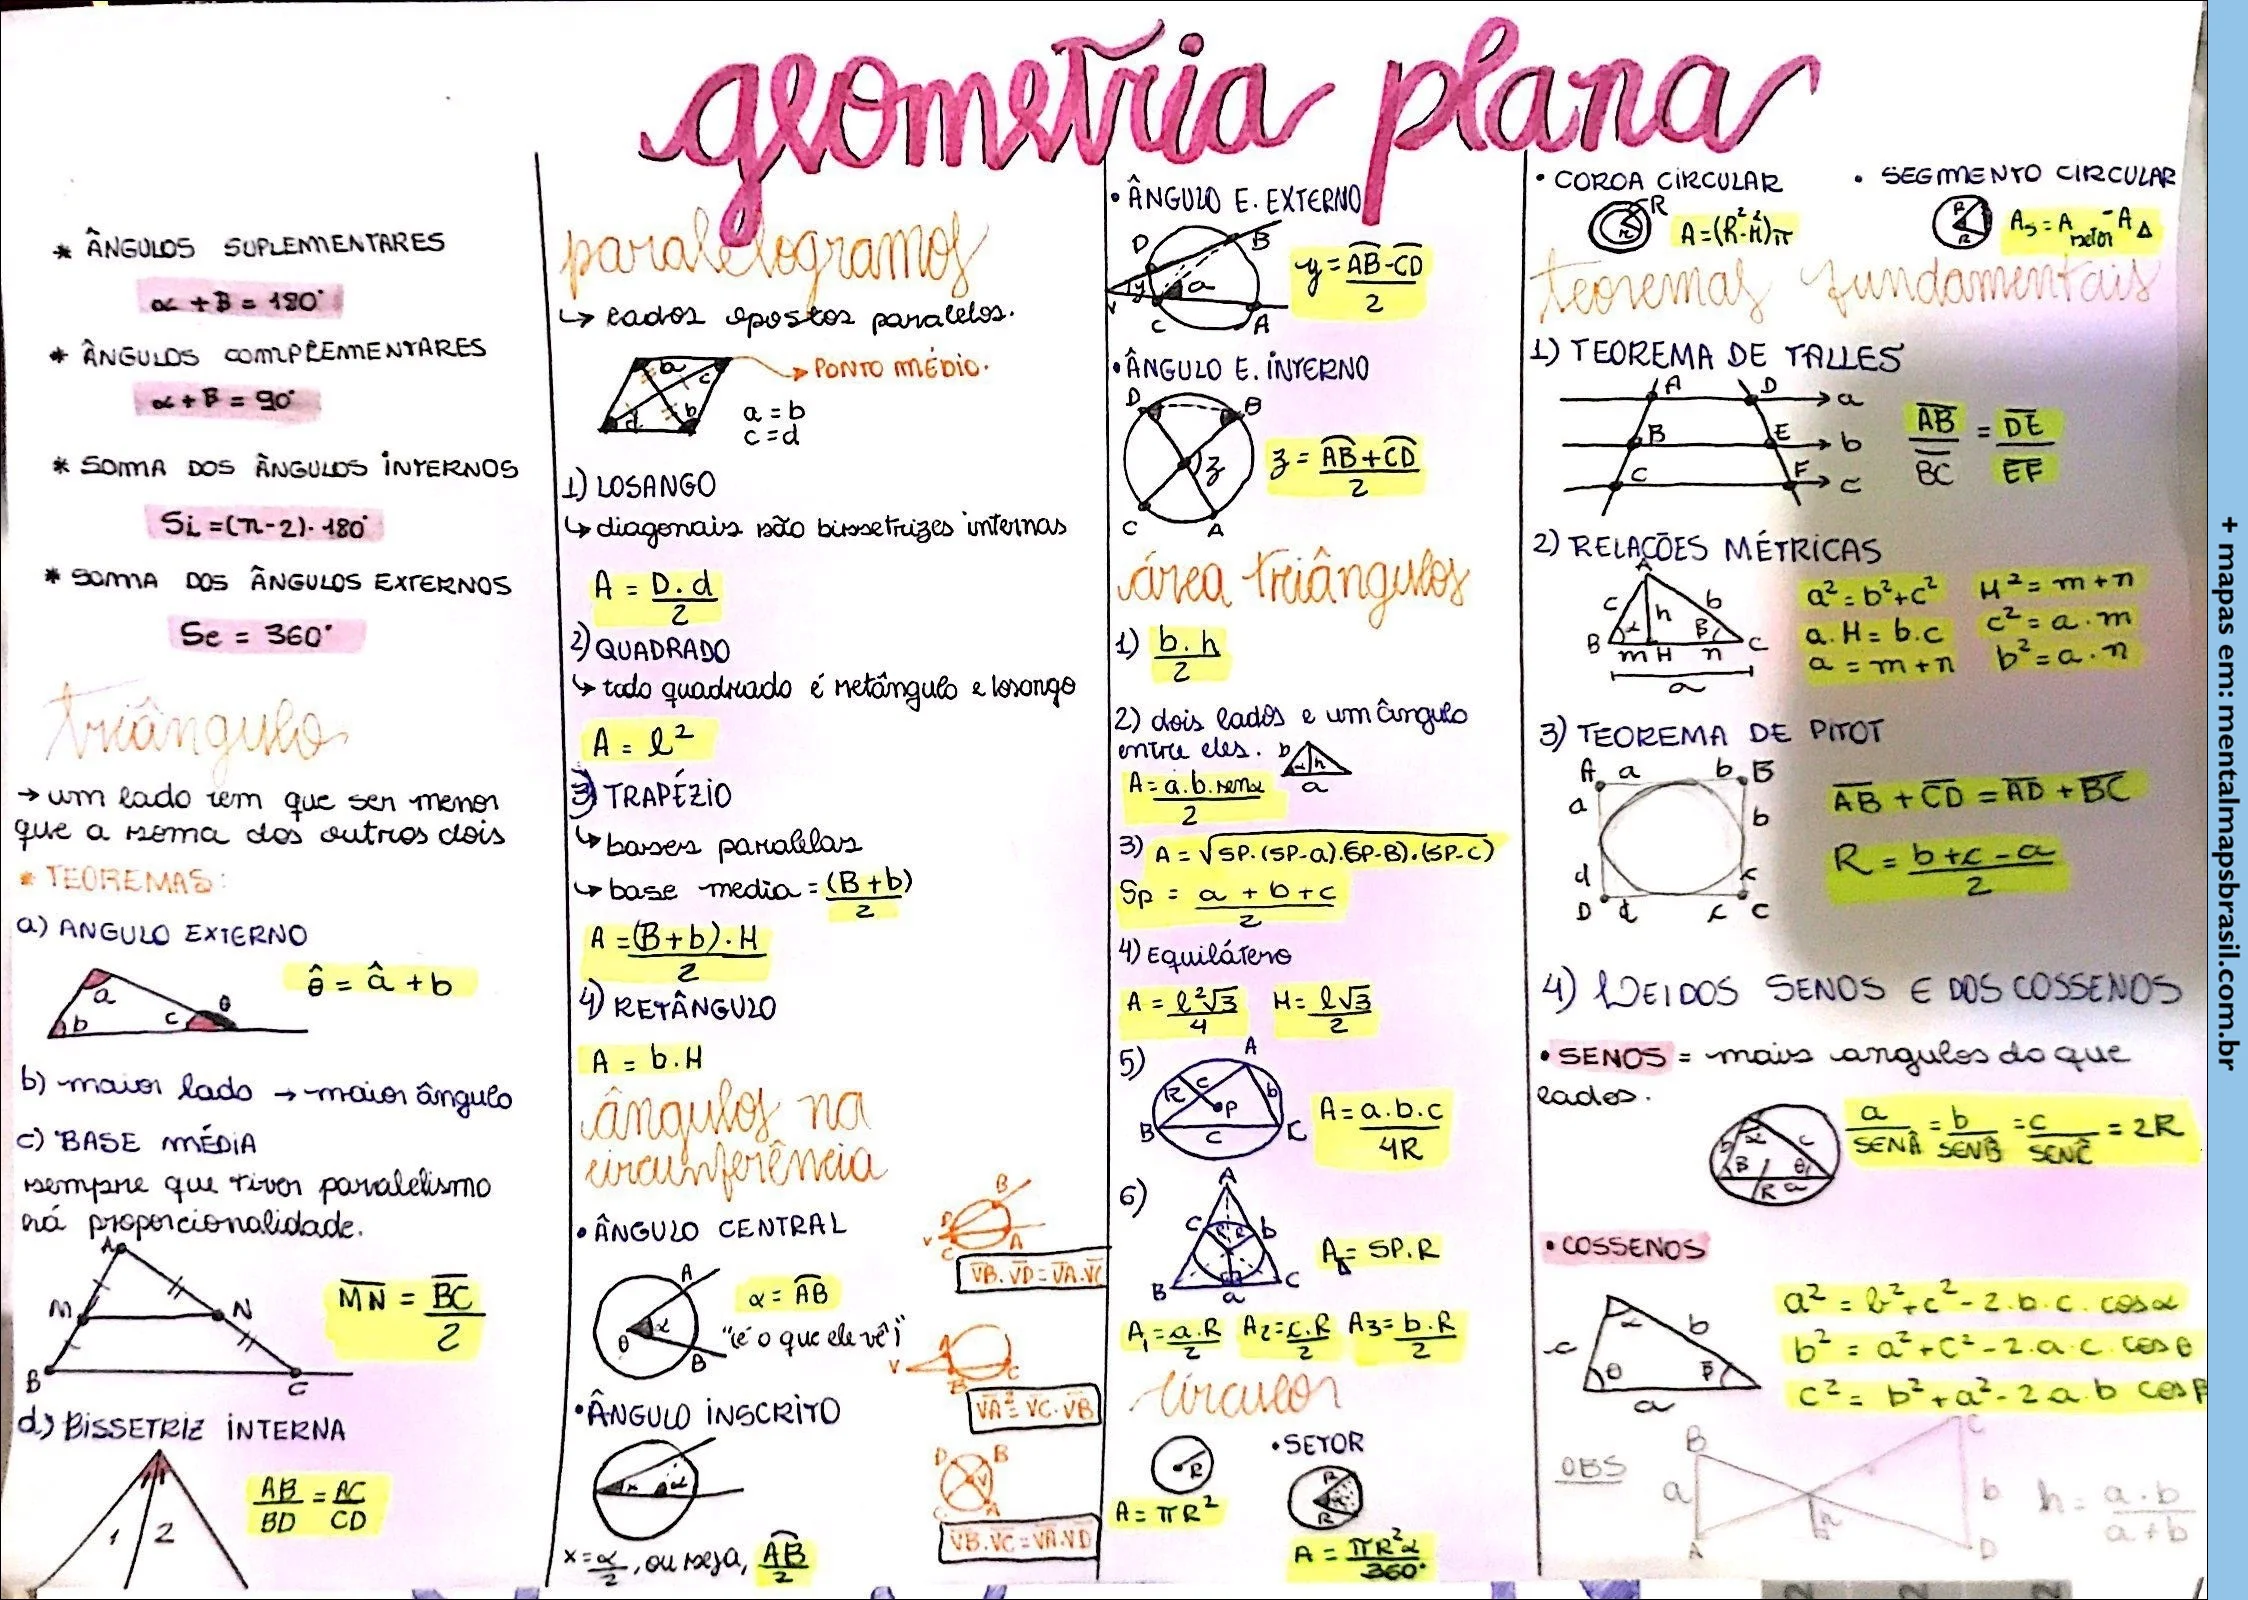 geometria plana
* ÂNGULOS SUPLEMENTARES
α + B = 180°
* ÂNGULOS COMPLEMENTARES
α + B = 90°
* SOMA DOS ÂNGULOS INTERNOS
Si = (n-2). 180°
* SOMA DOS ÂNGULOS EXTERNOS
Se = 360°
triângulo
→ um lado tem que ser menor
que a soma dos outros dois
* TEOREMAS:
a) ANGULO EXTERNO
a
b
c
θ
θ̂ = â + b
b) maior lado → maior ângulo
c) BASE MÉDIA
sempre que tiver paralelismo
há proporcionalidade.
A
M
N
B
C
MN = BC/2
d) BISSETRIZ INTERNA
1 2
AB/BD = AC/CD
paralelogramos
↳ lados opostos paralelos.
a
c
b
d
→ PONTO MÉDIO.
a = b
c = d
1) LOSANGO
↳ diagonais são bissetrizes internas
A = D.d/2
2) QUADRADO
↳ todo quadrado é retângulo e losango
A = l²
3) TRAPÉZIO
↳ bases paralelas
↳ base media = (B+b)/2
A = (B+b).H/2
4) RETÂNGULO
A = b.H
ângulos na
circunferência
• ÂNGULO CENTRAL
A
θ α
B
α = AB
"é o que ele vê"
• ÂNGULO INSCRITO
x α
x = α/2, ou seja, AB/2
B
D
V
C
A
VB.VD = VA.VC
A
V
B
C
VA² = VC.VB
D B
V
C A
VB.VC = VA.VD
• ÂNGULO E. EXTERNO
D
B
y
a
V
C
A
y = AB-CD/2
• ÂNGULO E. INTERNO
D
B
z
C
A
z = AB+CD/2
área triângulos
1) b.h/2
2) dois lados e um ângulo
entre eles.
b
α h
a
A = a.b.senα/2
3) A = √SP.(SP-a).(SP-B).(SP-C)
Sp = a + b + c/2
4) Equilátero
A = l²√3/4 H = l√3/2
5)
A
R c b
P
B
C
c
A = a.b.c/4R
6)
A
c b
R R
B
C
a
A△ = SP.R
A1 = a.R/2 A2 = c.R/2 A3 = b.R/2
círculos
R
A = πR²
• SETOR
R
α
R
A = πR²α/360°
• COROA CIRCULAR
R
r
A = (R²-r²)π
• SEGMENTO CIRCULAR
R
R
As = A setor - A△
teoremas fundamentais
1) TEOREMA DE TALLES
A D a
B E b
C F c
AB/BC = DE/EF
2) RELAÇÕES MÉTRICAS
A
c b
h
α β
B C
m H n
a
a² = b²+c² H² = m+n
a.H = b.c c² = a.m
a = m+n b² = a.n
3) TEOREMA DE PITOT
A a b B
a b
d c
D d c C
AB + CD = AD + BC
R = b+c-a/2
4) LEI DOS SENOS E DOS COSSENOS
• SENOS = mais angulos do que
lados.
b α c
B θ
R a
a/SENÂ = b/SENB̂ = c/SENĈ = 2R
• COSSENOS
α b
c
θ β
a
a² = b²+c²-2.b.c.cosα
b² = a²+c²-2.a.c.cosθ
c² = b²+a²-2a.b cosβ
OBS
B C
a b
h
A D
h = a.b/a+b
+ mapas em: mentalmapsbrasil.com.br